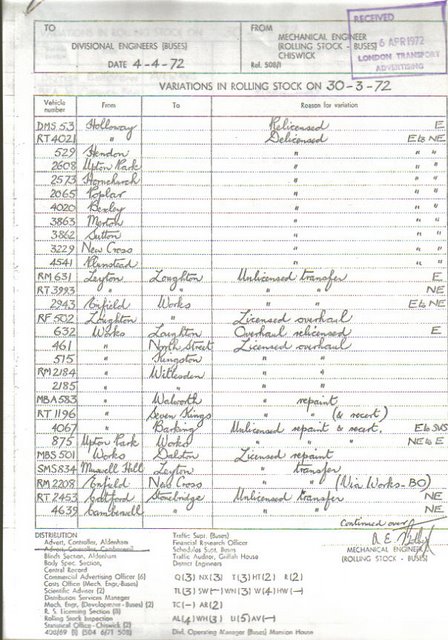 TO
DIVISIONAL ENGINEERS (BUSES)
DATE 4-4-72
FROM
MECHANICAL ENGINEER
(ROLLING STOCK - BUSES)
CHISWICK
Ref. 508/1
RECEIVED
6 APR 1972
LONDON TRANSPORT
ADVERTISING
VARIATIONS IN ROLLING STOCK ON 30-3-72
Vehicle number From To Reason for variation
DMS 53 Holloway Relicensed E
RT 4021 " Delicensed E to NE
529 Hendon " " "
2608 Upton Park " " "
2573 Hornchurch " " "
2065 Poplar " " "
4020 Bexley " " "
3863 Merton " " "
3862 Sutton " " "
3229 New Cross " " "
4541 Plumstead " " "
RM 631 Leyton Loughton Unlicensed transfer E
RT 3993 " " " " NE
2943 Enfield Works " " E to NE
RF 502 Loughton " Licensed overhaul
632 Works Loughton Overhaul relicensed E
461 " North Street Licensed overhaul
515 " Kingston " "
RM 2184 " Willesden " "
2185 " " " "
MBA 583 " Walworth " repaint
RT 1196 " Seven Kings " " (& recert)
4067 " Barking Unlicensed repaint & recert. E to SWS
875 Upton Park Works " " " NE to E
MBS 501 Works Dalston Licensed repaint
SMS 834 Muswell Hill Leyton " transfer
RM 2208 Enfield New Cross " " (Via Works-BO)
RT 2453 Catford Stonebridge Unlicensed transfer NE
4639 Camberwell " " " NE
Continued over
MECHANICAL ENGINEER
(ROLLING STOCK - BUSES)
DISTRIBUTION
Advert. Controller, Aldenham
Blinds Section, Aldenham
Body Spec. Section,
Central Record
Commercial Advertising Officer (6)
Costs Office (Mech. Engr.-Buses)
Scientific Adviser (2)
Distribution Services Manager
Mech. Engr. (Development - Buses) (2)
R. S. Licensing Section (8)
Rolling Stock Inspection
Statistical Office - Chiswick (2)
Traffic Supt. (Buses)
Financial Research Officer
Schedules Supt. Buses
Traffic Auditor, Griffith House
District Engineers
Q(3) NX(3) T(3) HT(2) R(2)
TL(3) SW(-) WN(3) W(4) HW(-)
TC(-) AR(2)
AL(4) WH(3) U(5) AV(-)
Divl. Operating Manager (Buses) Mansion House